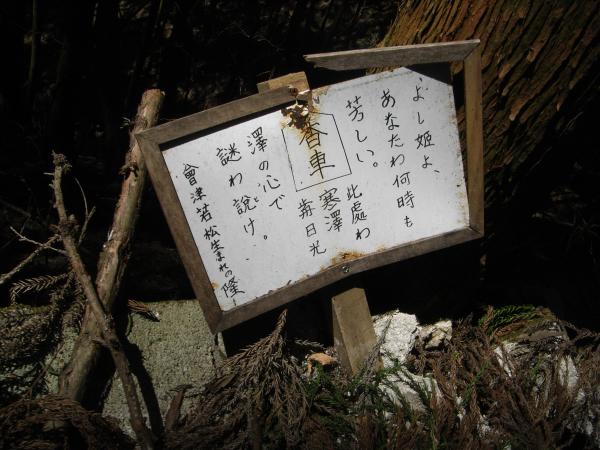 よし姫よ、
あなたわ何時も
芳しい。此處わ
香車
寒澤
毎日光
澤の心で。
謎わ説け、
會津若松生まれの隆一